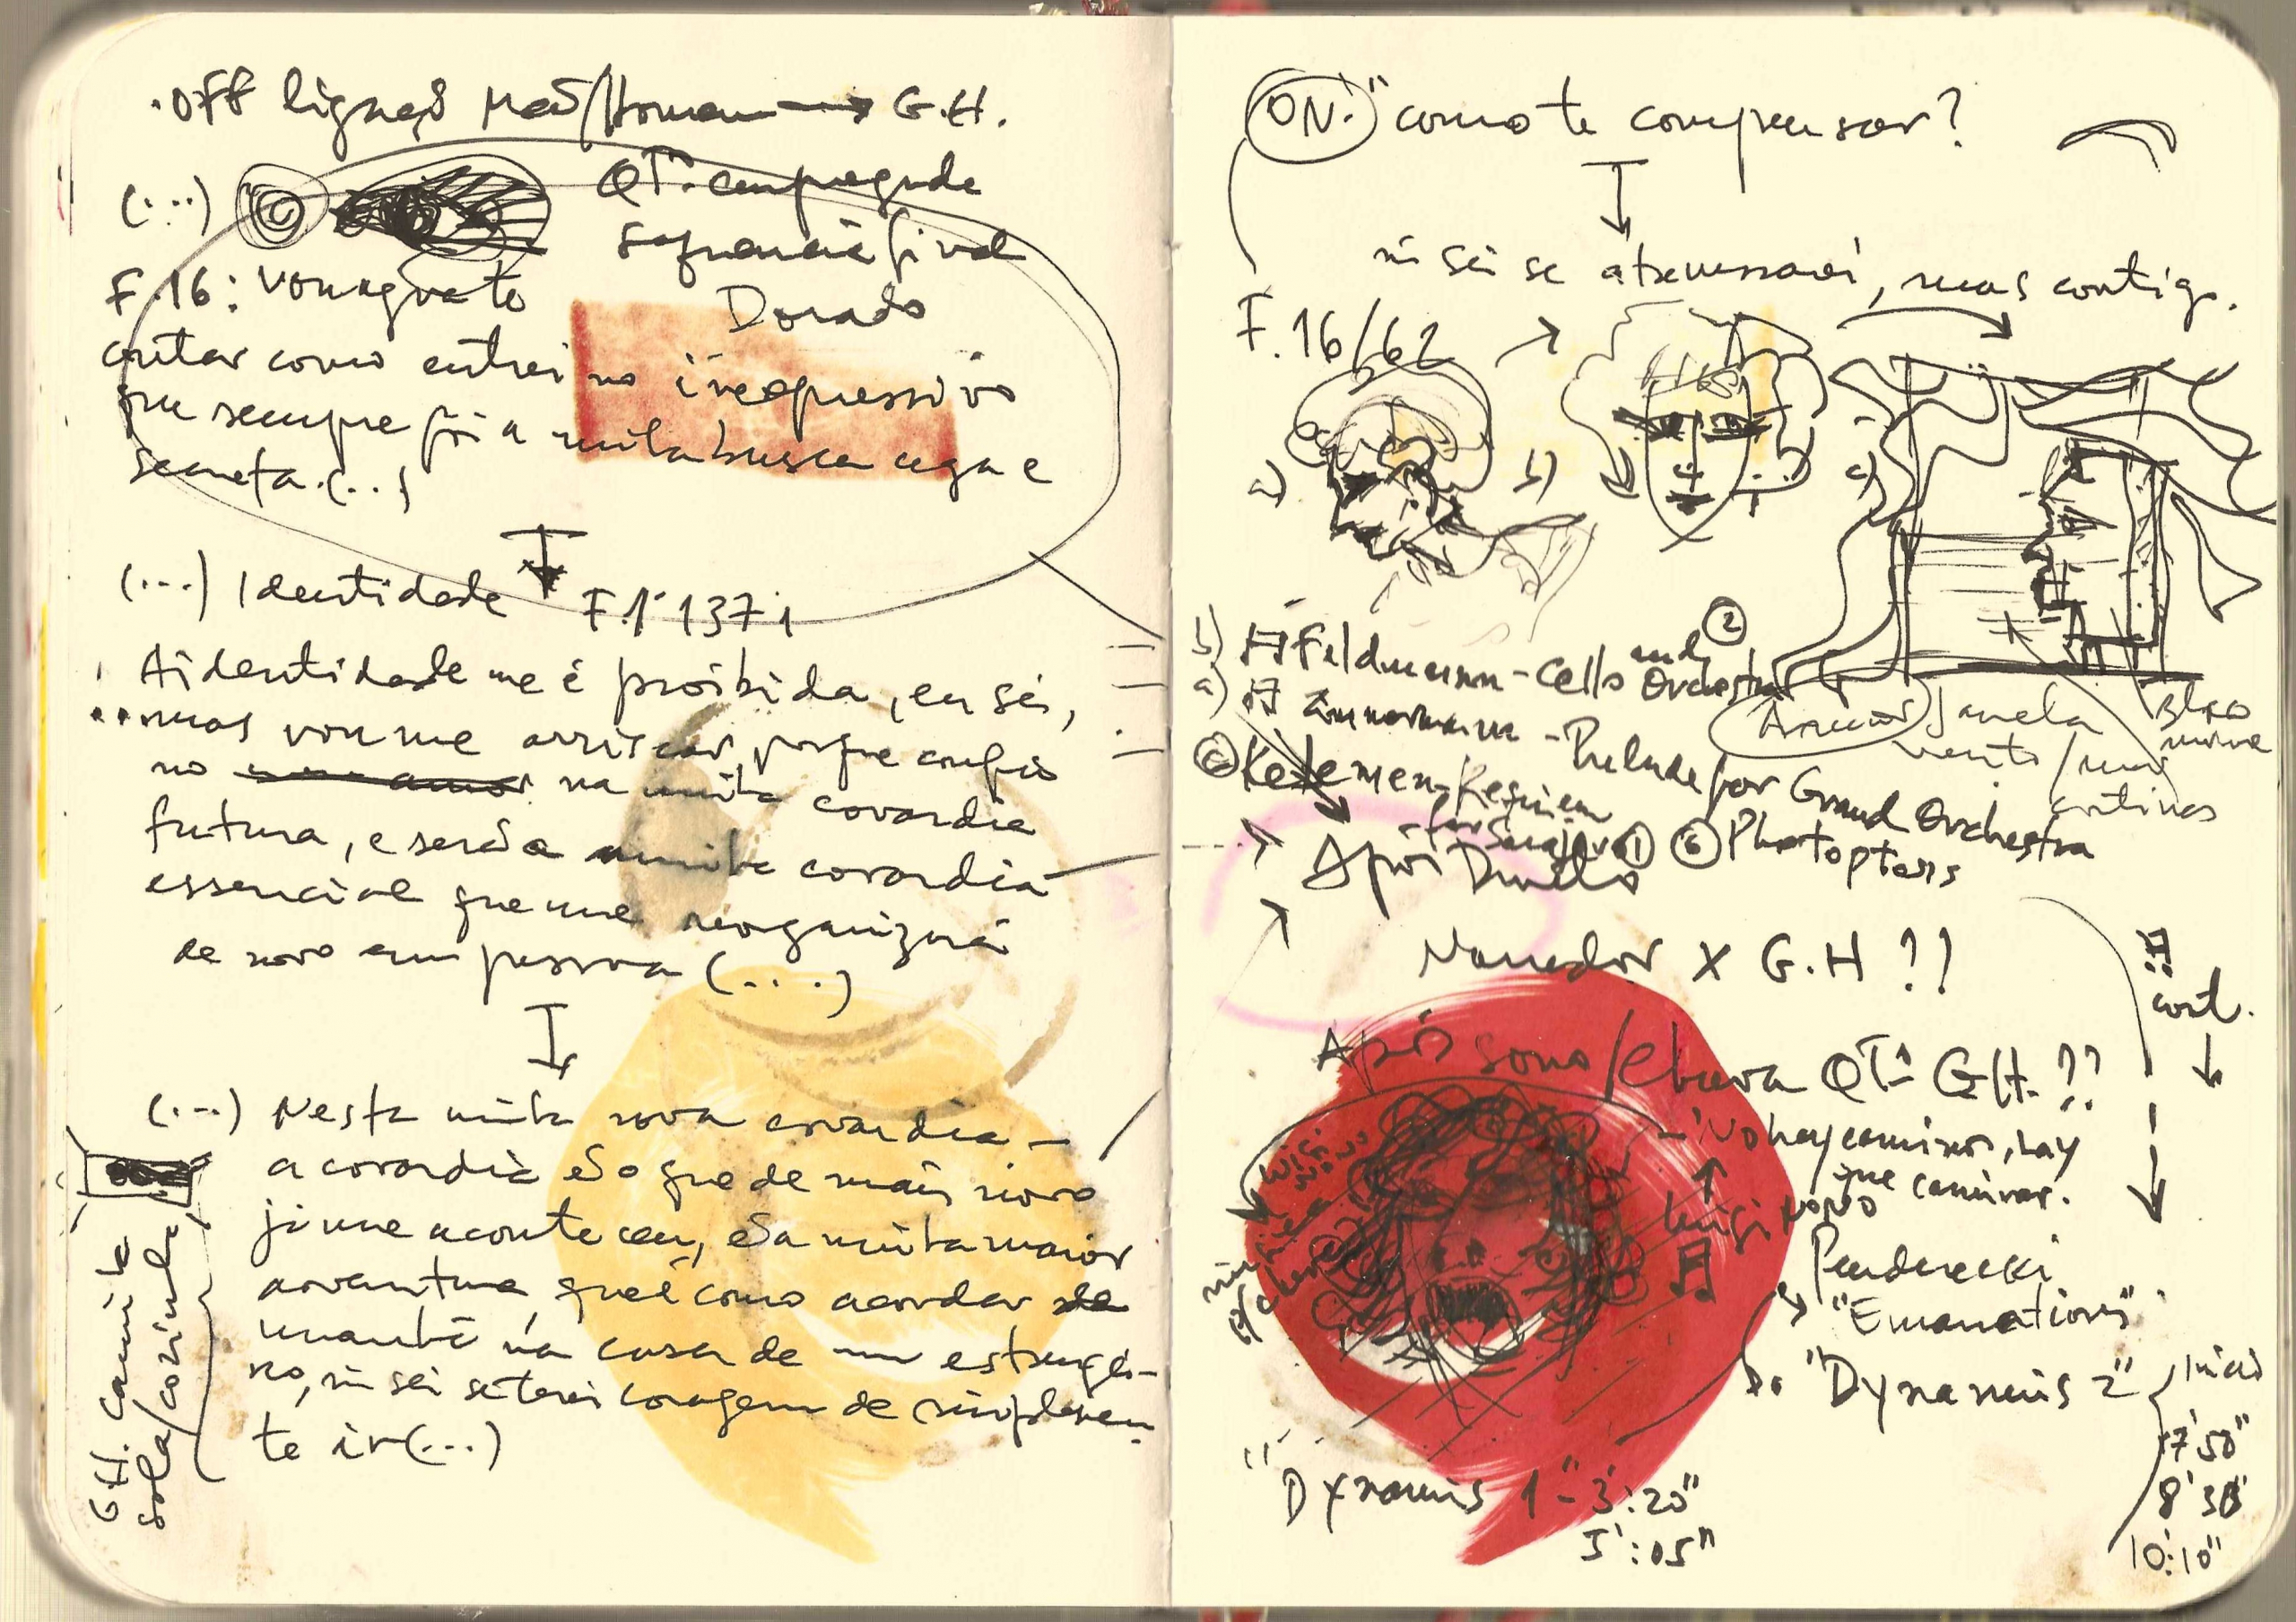 .OFF ligação Mão/Homem → G.H.
(...) QTº empregada
sequência final
Dorado
F.16: Vou agora te
contar como entrei no inexpressivo
que sempre foi a minha busca cega e
secreta.(...)
(...) Identidade F.1 137
A identidade me é proibida, eu sei,
mas vou me arriscar porque confio
no na minha covardia
futura, e será a minha covardia
essencial que me reorganizará
de novo em pessoa (...)
(...) Nesta minha nova covardia –
a covardia é o que de mais novo
já me aconteceu, é a minha maior
aventura, que é como acordar de
manhã na casa de um estrangei-
ro, ñ sei se terei coragem de simplesmen-
te ir (...)
G.H. caminha
sala/cozinha
ON: "como te compensar?
ñ sei se atravessarei, mas contigo.
F.16/62
a)
b)
c)
b) Feldmann - Cello and Orchestra ②
a) Zimmermann - Prelude for Grand Orchestra
⑥ Photoptosis
c) Kelemen - Requiem
for Sarajevo ①
Janela
vento/
cortinas
Após Dunllo
Narrador X G.H ??
cont.
Após sono/ QTº G.H. ??
- "No hay caminos, hay
que caminar.
Luigi Nono
Penderecki
"Emanations".
"Dynamis 2" Início
7'50"
8'38"
10:10"
"Dynamis 1" - 3':20"
5':05"